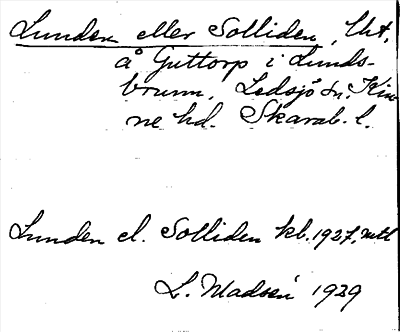 Lunden eller Solliden, lht,
å Guttorp i Lunds-
brunn, Ledsjö sn. Kin-
ne hd. Skarab. l.
Lunden el. Solliden kb. 1927, mtl
L. Madsén 1929